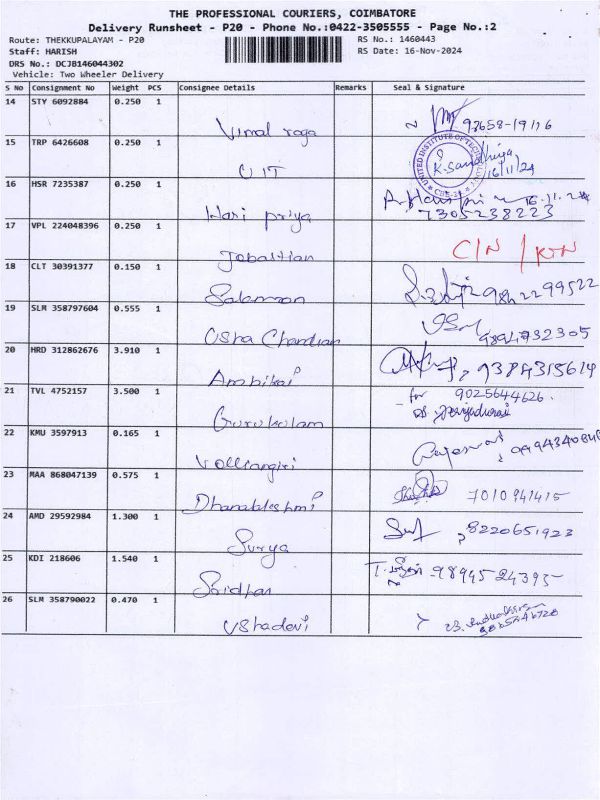 THE PROFESSIONAL COURIERS, COIMBATORE
Delivery Runsheet - P20 - Phone No.:0422-3505555 - Page No.:2
Route: THEKKUPALAYAM - P20 RS No.: 1460443
Staff: HARISH RS Date: 16-Nov-2024
DRS No.: DCJB146044302
Vehicle: Two Wheeler Delivery
S No Consignment No Weight PCS Consignee Details Remarks Seal & Signature
14 STY 6092884 0.250 1 Vimal raga 93658-19176
15 TRP 6426608 0.250 1 UIT K. Sandhiya 16/11/24
UNITED INSTITUTE OF TECHNOLOGY
16 HSR 7235387 0.250 1 Hari priya 16.11.24
7305238223
17 VPL 224048396 0.250 1 Jebastian C/N /
18 CLT 30391377 0.150 1 Salamon 9842299522
19 SLM 358797604 0.555 1 Usha Chandran 9894732305
20 HRD 312862676 3.910 1 Ambikai 9384315614
21 TVL 4752157 3.500 1 Gurukulam for 9025644626
22 KMU 3597913 0.165 1 Velliangiri
23 MAA 868047139 0.575 1 Dhanalakshmi 7010941415
24 AMD 29592984 1.300 1 Surya 8220651923
25 KDI 218606 1.540 1 Sridhar 9894524395
26 SLM 358790022 0.470 1 Ushadevi